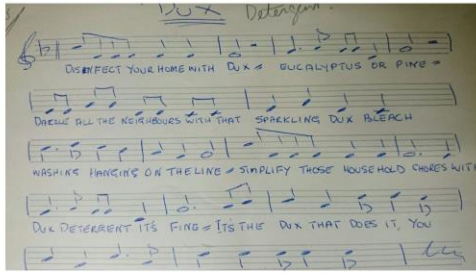 DUX Detergent.
DISINFECT YOUR HOME WITH DUX = EUCALYPTUS OR PINE =
DAZZLE ALL THE NEIGHBOURS WITH THAT SPARKLING DUX BLEACH
WASHING HANGING ON THE LINE = SIMPLIFY THOSE HOUSEHOLD CHORES WITH
DUX DETERGENT IT'S FINE = IT'S THE DUX THAT DOES IT, YOU